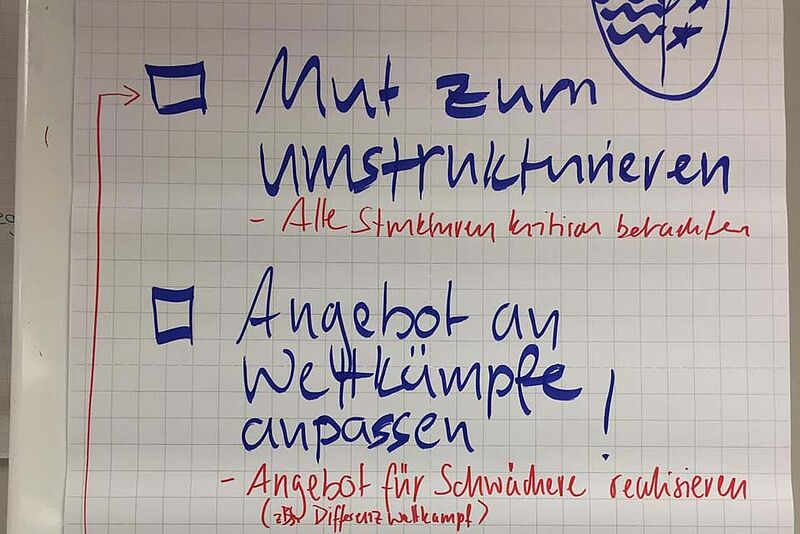 Mut zum
umstrukturieren
- Alle Strukturen kritisch betrachten
Angebot an
Wettkämpfe
anpassen !
- Angebot für Schwächere realisieren
( Differenzwettkampf)